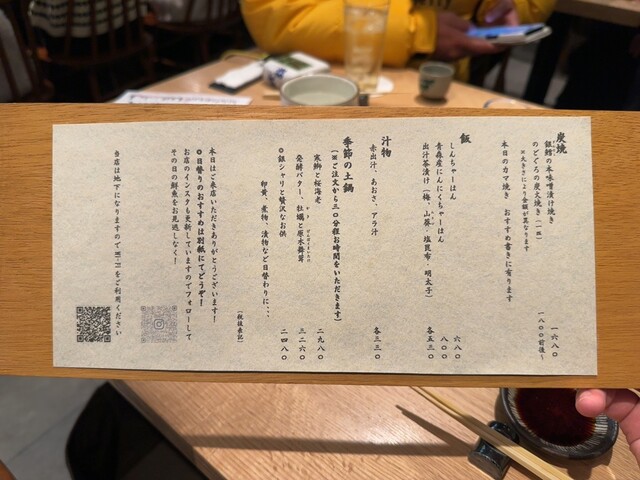 炭焼
銀鱈の本味噌漬け焼き 一六八〇
のどぐろの炭火焼き(一匹) 一八〇〇前後〜
※大きさにより金額が異なります
本日のカマ焼き おすすめ書きに有ります
飯
しんちゃーはん 六八〇
青森産にんにくちゃーはん 八〇〇
出汁茶漬け(梅、山葵・塩昆布・明太子) 各五三〇
汁物
赤出汁、あおさ、アラ汁 各三三〇
季節の土鍋
(※ご注文から三〇分程お時間をいただきます)
寒鰤と桜海老 二九八〇
発酵バター、牡蠣と原木舞茸 三二六〇
◎銀シャリと贅沢なお供 二四八〇
卵黄、煮物、漬物など日替わりに、、、
(税抜表記)
本日はご来店いただきありがとうございます!
◎日替りのおすすめは別紙にてどうぞ!
お店のインスタも更新していますのでフォローして
その日の鮮魚をお見逃しなく!
当店は地下になりますのでWi-Fiをご利用ください